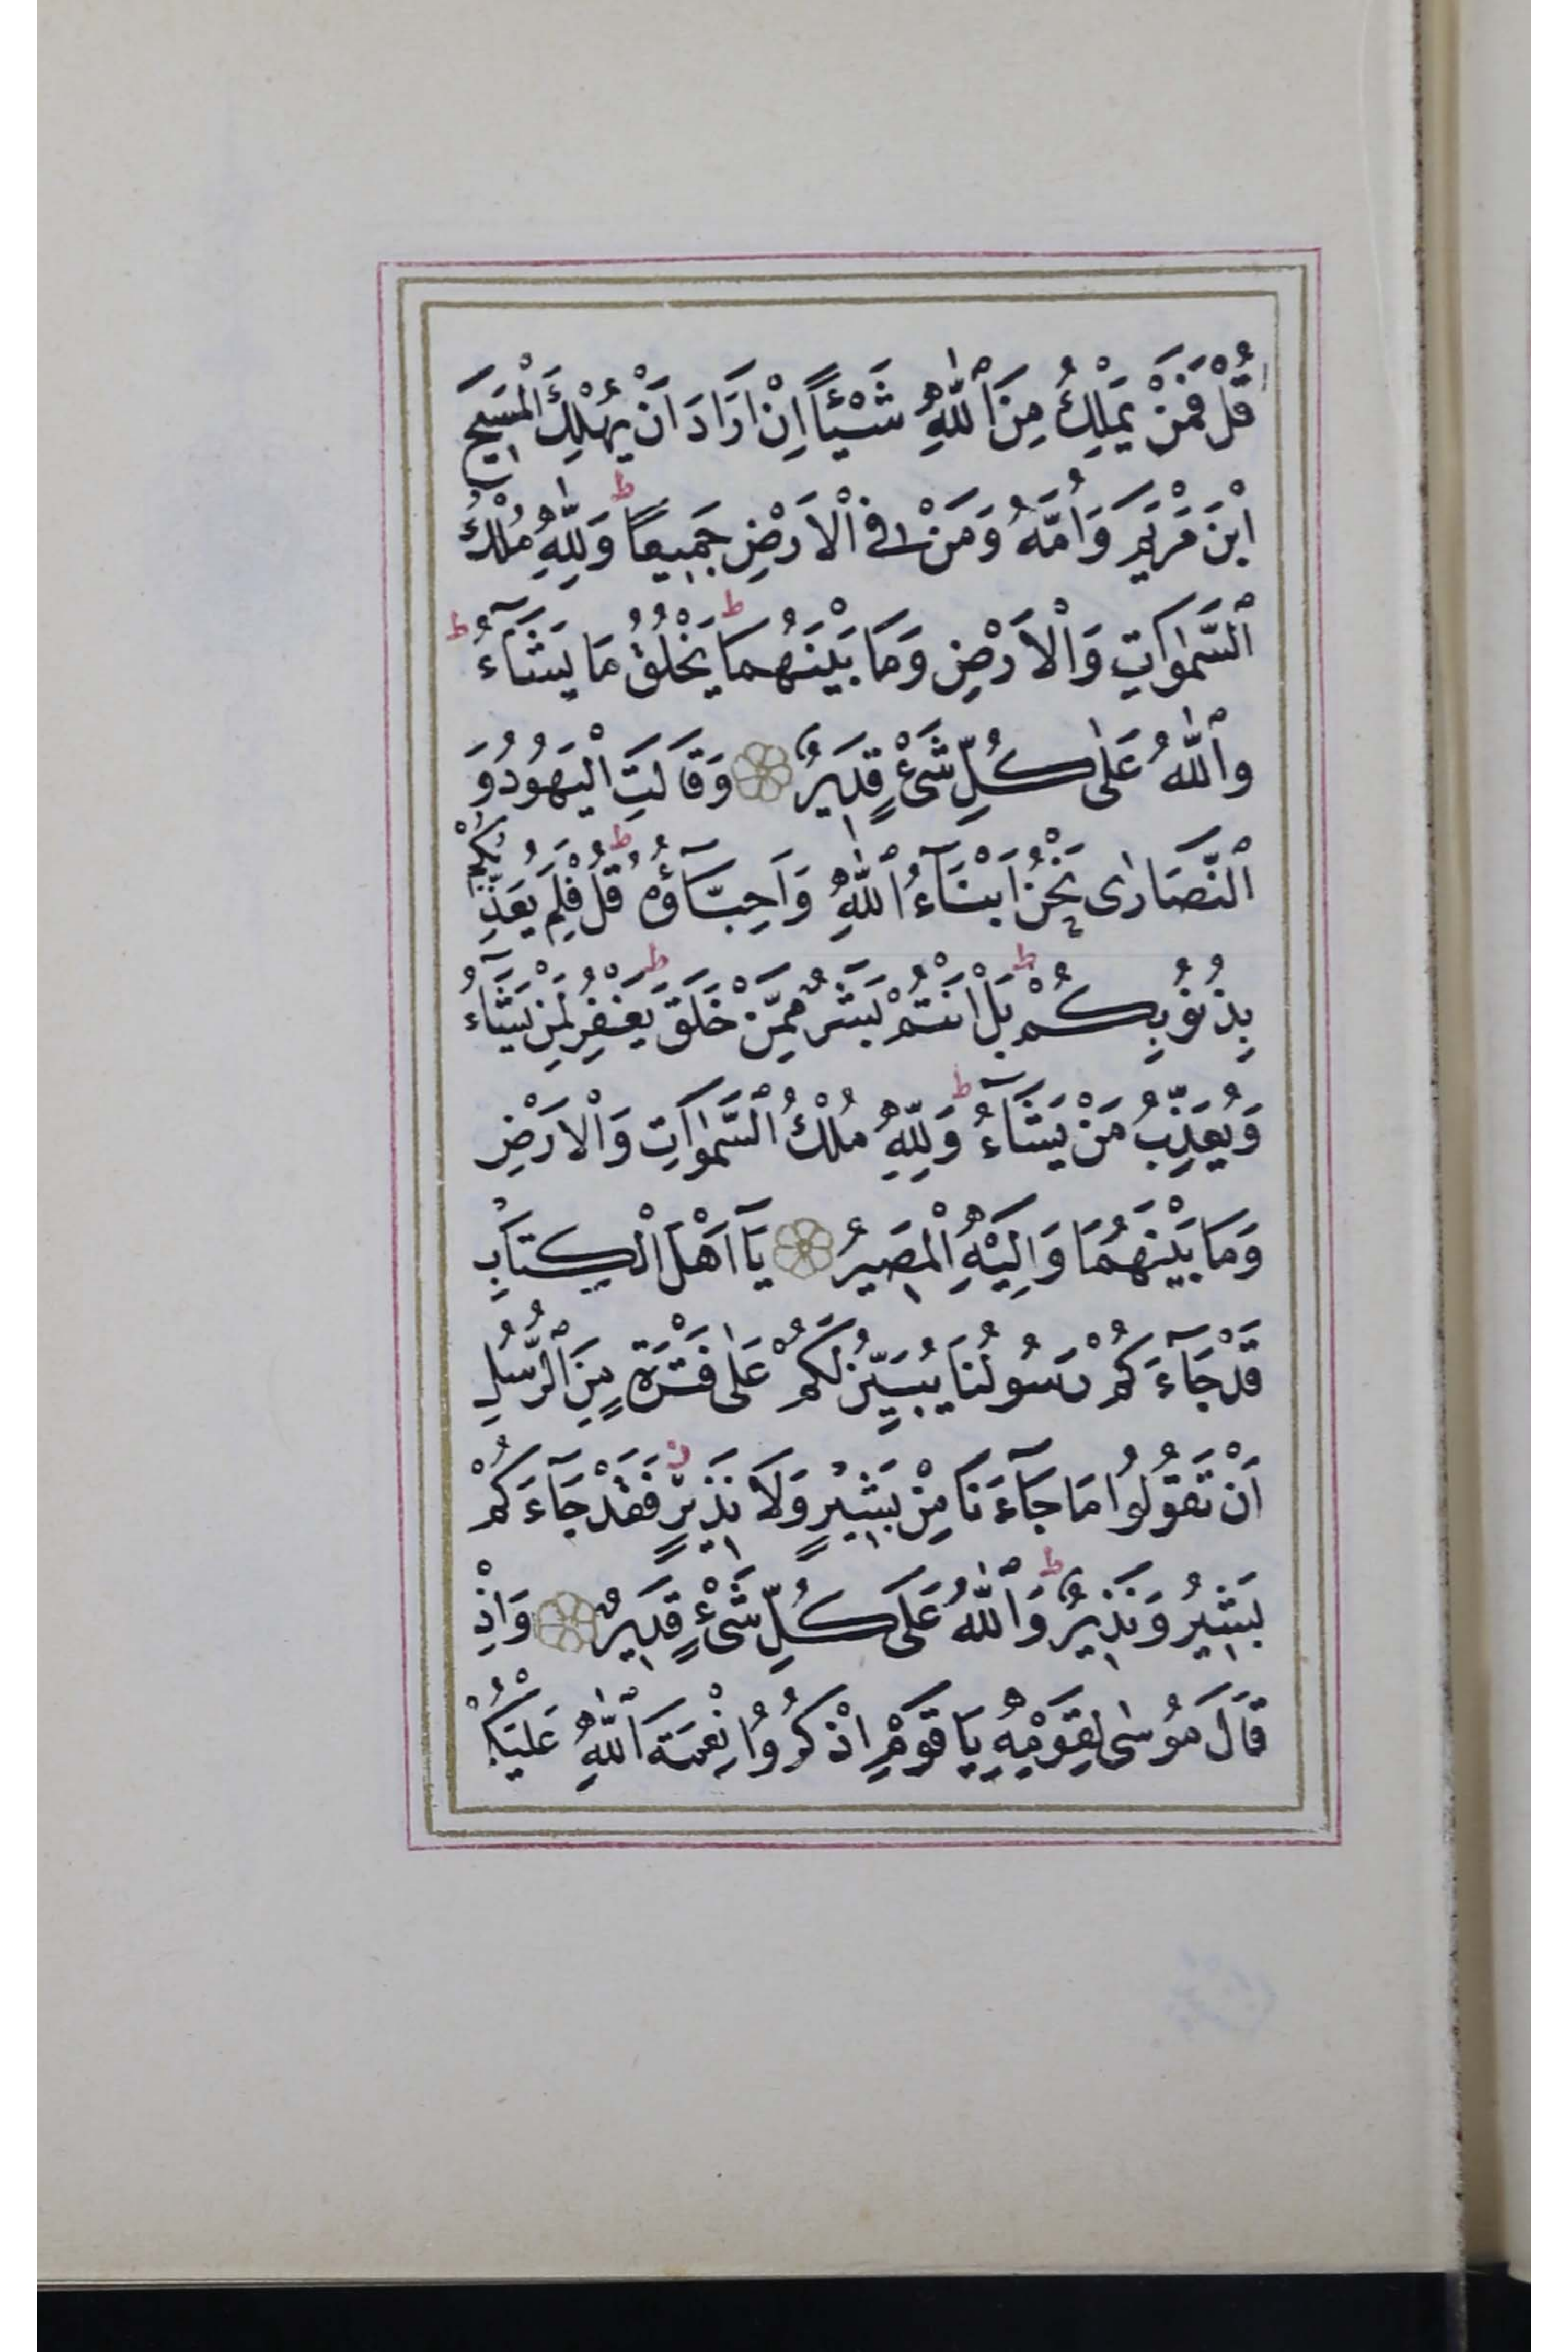 قُلْ فَمَنْ يَمْلِكُ مِنَ ٱللّٰهِ شَيْـًٔا اِنْ اَرَادَ اَنْ يُهْلِكَ الْمَسٖيحَ
ابْنَ مَرْيَمَ وَاُمَّهُ وَمَنْ فِى الْاَرْضِ جَمٖيعًا ط وَلِلّٰهِ مُلْكُ
ٱلسَّمٰوَاتِ وَالْاَرْضِ وَمَا بَيْنَهُمَا ط يَخْلُقُ مَا يَشَآءُ ط
وٱللّٰهُ عَلٰى كُلِّ شَىْءٍ قَدٖيرٌ وَقَالَتِ الْيَهُودُ وَ
ٱلنَّصَارٰى نَحْنُ اَبْنَآءُ ٱللّٰهِ وَاَحِبَّآؤُهُ ط قُلْ فَلِمَ يُعَذِّبُكُمْ
بِذُنُوبِكُمْ ط بَلْ اَنْتُمْ بَشَرٌ مِمَّنْ خَلَقَ ط يَغْفِرُ لِمَنْ يَشَآءُ
وَيُعَذِّبُ مَنْ يَشَآءُ ط وَلِلّٰهِ مُلْكُ ٱلسَّمٰوَاتِ وَالْاَرْضِ
وَمَا بَيْنَهُمَا وَاِلَيْهِ الْمَصٖيرُ يَآ اَهْلَ الْكِتَابِ
قَدْ جَآءَكُمْ رَسُولُنَا يُبَيِّنُ لَكُمْ عَلٰى فَتْرَةٍ مِنَ ٱلرُّسُلِ
اَنْ تَقُولُوا مَا جَآءَنَا مِنْ بَشٖيرٍ وَلَا نَذٖيرٍ ز فَقَدْ جَآءَكُمْ
بَشٖيرٌ وَنَذٖيرٌ ط وَٱللّٰهُ عَلَى كُلِّ شَىْءٍ قَدٖيرٌ وَاِذْ
قَالَ مُوسٰى لِقَوْمِهِ يَا قَوْمِ اذْكُرُوا نِعْمَةَ ٱللّٰهِ عَلَيْكُمْ